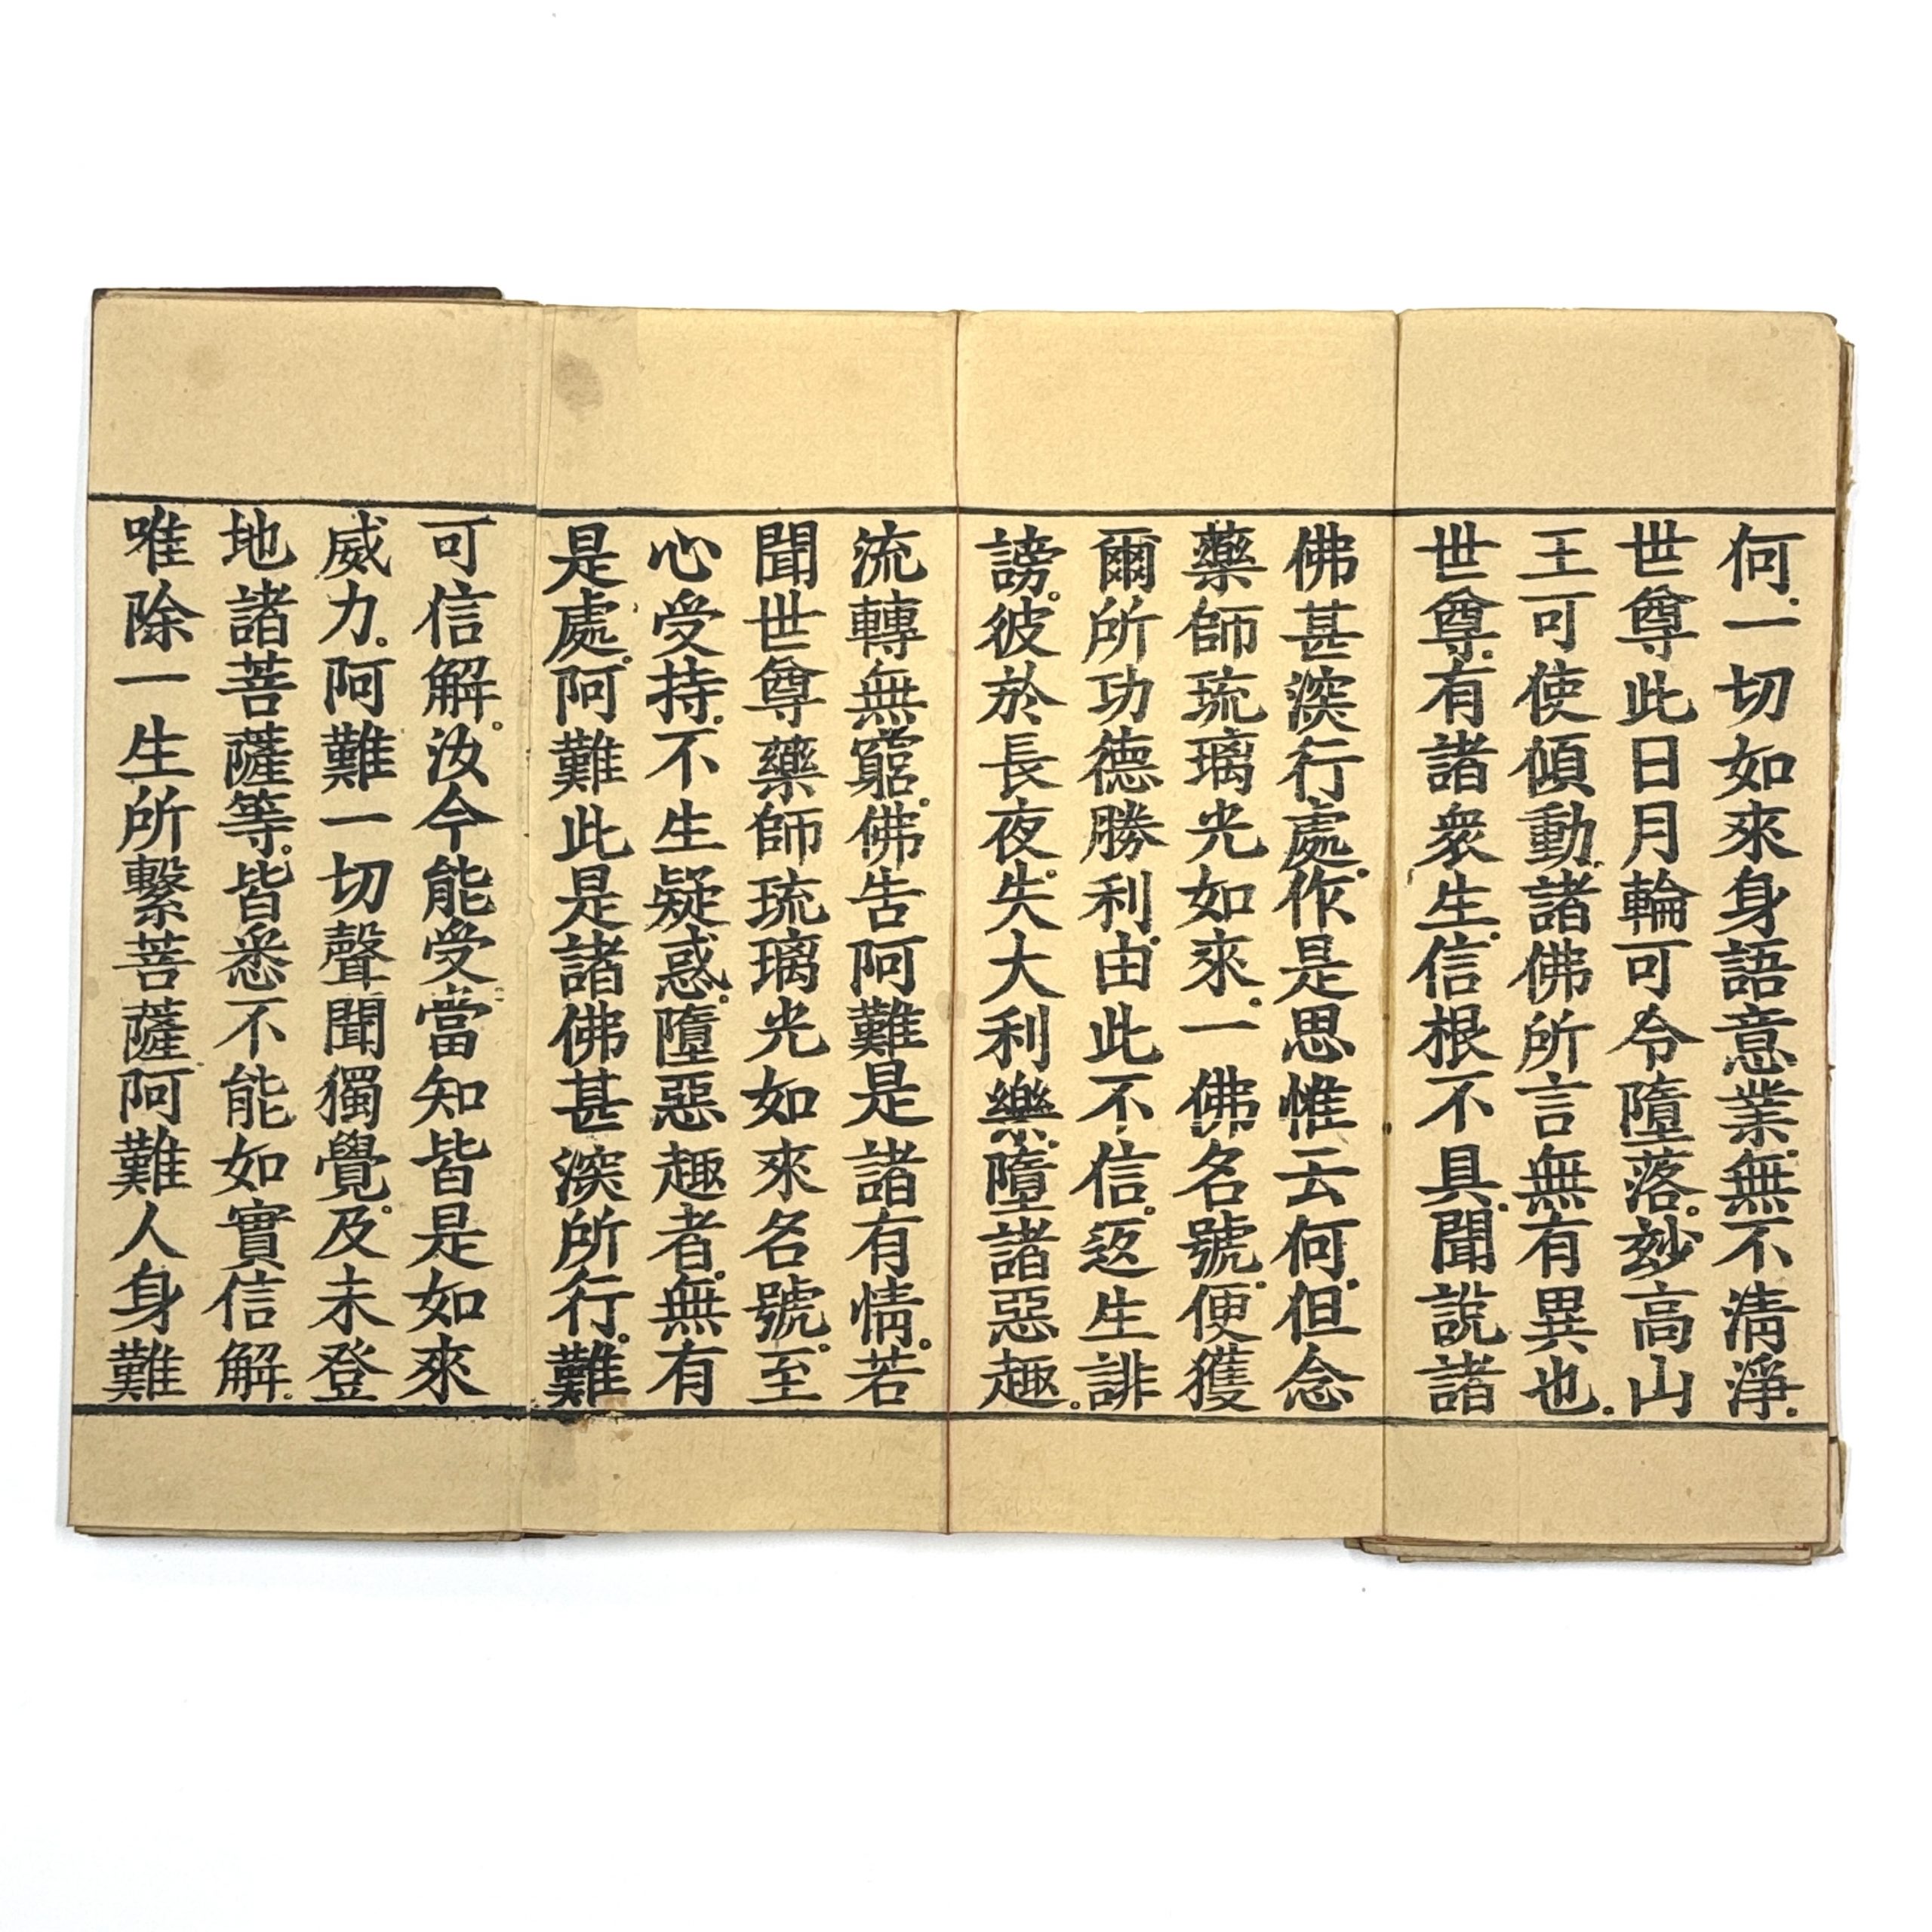 何。一切如來身語意業。無不淸淨。
世尊此日月輪可令墮落。玅高山
王可使傾動。諸佛所言無有異也。
世尊。有諸衆生。信根不具。聞說諸
佛甚深行處。作是思惟云何。但念
藥師琉璃光如來。一佛名號。便獲
爾所功德勝利。由此不信。返生誹
謗。彼於長夜。失大利樂。墮諸惡趣。
流轉無窮。佛告阿難是諸有情。若
聞世尊藥師琉璃光如來名號。至
心受持。不生疑惑。墮惡趣者。無有
是處。阿難此是諸佛甚深所行。難
可信解。汝今能受。當知皆是如來
威力。阿難一切聲聞獨覺。及未登
地諸菩薩等。皆悉不能如實信解。
唯除一生所繫菩薩。阿難人身難